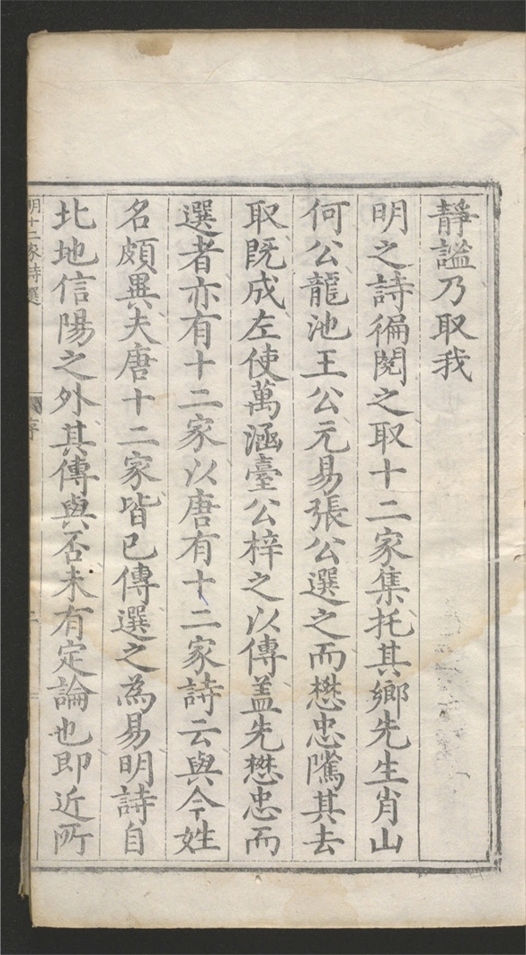 靜謐乃取我
明之詩徧閱之取十二家集托其鄉先生肖山
何公龍池王公元易張公選之而懋忠隲其去
取既成左使萬涵臺公梓之以傳盖先懋忠而
選者亦有十二家以唐有十二家詩云與今姓
名頗異夫唐十二家皆已傳選之為易明詩自
北地信陽之外其傳與否未有定論也即近所
明十二家詩選
序